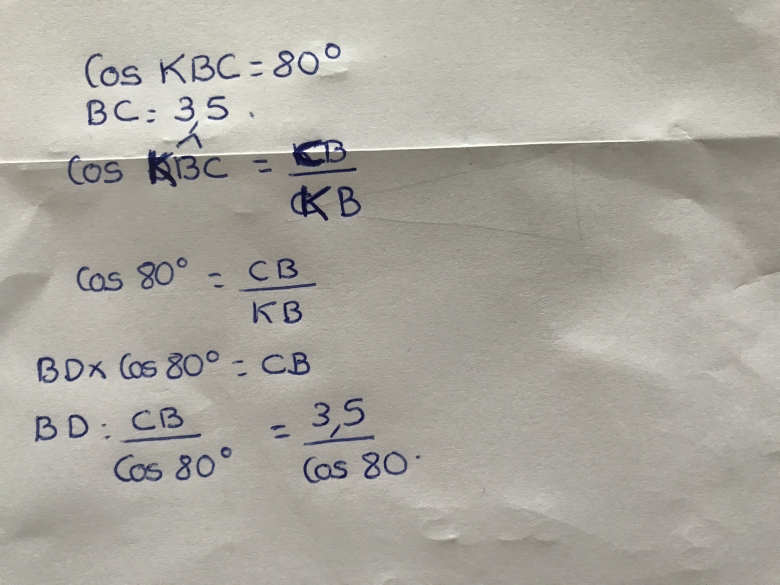 Cos KBC = 80°
BC = 3,5.
Cos K̂BC = CB / KB
Cos 80° = CB / KB
BD × Cos 80° = CB
BD : CB / Cos 80° = 3,5 / Cos 80.